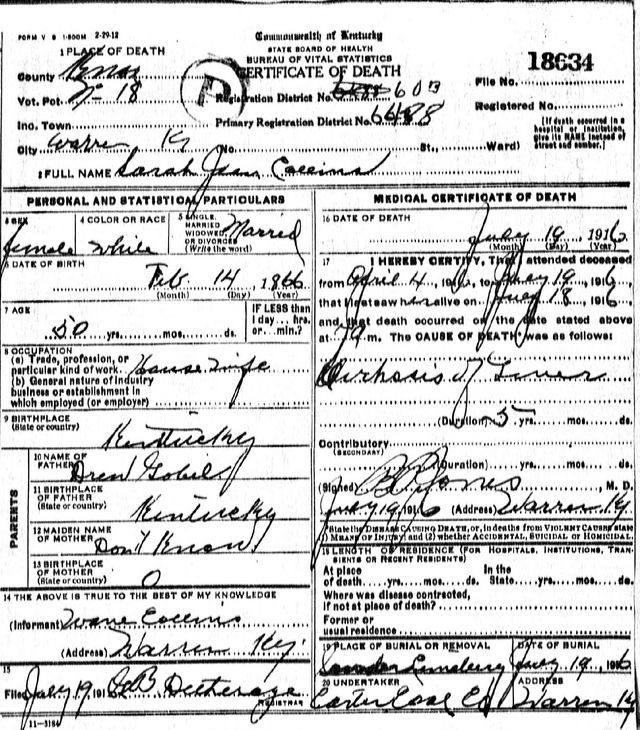 FORM V S 1-500M 2-29-12
Commonwealth of Kentucky
STATE BOARD OF HEALTH
BUREAU OF VITAL STATISTICS
CERTIFICATE OF DEATH
1 PLACE OF DEATH
County Knox
Vot. Pct. No 18
Inc. Town
City Warren Ky (No. St., Ward)
Registration District No. 603
Primary Registration District No. 6488
File No. 18634
Registered No.
[If death occurred in a
hospital or institution,
give its NAME instead of
street and number.]
2 FULL NAME Sarah Jean Collins
PERSONAL AND STATISTICAL PARTICULARS
3 SEX
female
4 COLOR OR RACE
White
5 SINGLE,
MARRIED
WIDOWED,
OR DIVORCED
(Write the word)
Married
6 DATE OF BIRTH
Feb. 14, 1866
(Month) (Day) (Year)
7 AGE
50 yrs. mos. ds.
IF LESS than
1 day... hrs.
or... min.?
8 OCCUPATION
(a) Trade, profession, or
particular kind of work House wife
(b) General nature of industry
business or establishment in
which employed (or employer)
9 BIRTHPLACE
(State or country)
Kentucky
PARENTS
10 NAME OF
FATHER
11 BIRTHPLACE
OF FATHER
(State or country)
Kentucky
12 MAIDEN NAME
OF MOTHER
Don't Know
13 BIRTHPLACE
OF MOTHER
(State or country)
O
14 THE ABOVE IS TRUE TO THE BEST OF MY KNOWLEDGE
(Informant) Collins
(Address) Warren Ky.
15
Filed July 19 1916
REGISTRAR
11-3184
MEDICAL CERTIFICATE OF DEATH
16 DATE OF DEATH
July 19, 1916
(Month) (Day) (Year)
17 I HEREBY CERTIFY, That I attended deceased
from April 4, 1916, to July 19, 1916
that I last saw her alive on July 18, 1916
and that death occurred on the date stated above
at m. The CAUSE OF DEATH was as follows:
Cirhosis of Liver
(Duration) 5 yrs. mos. ds.
Contributory
(SECONDARY)
(Duration) yrs. mos. ds.
(Signed) Jones, M. D.
July 19 1916 (Address) Warren Ky
State the DISEASE CAUSING DEATH, or, in deaths from VIOLENT CAUSES state
(1) MEANS OF INJURY; and (2) whether ACCIDENTAL, SUICIDAL or HOMICIDAL.
18 LENGTH OF RESIDENCE (FOR HOSPITALS, INSTITUTIONS, TRANSIENTS OR RECENT RESIDENTS)
At place
of death....yrs....mos....ds.
In the
State....yrs....mos....ds.
Where was disease contracted,
if not at place of death?
Former or
usual residence
19 PLACE OF BURIAL OR REMOVAL
DATE OF BURIAL
July 19, 1916
20 UNDERTAKER
Carter Coal Co
ADDRESS
Warren Ky